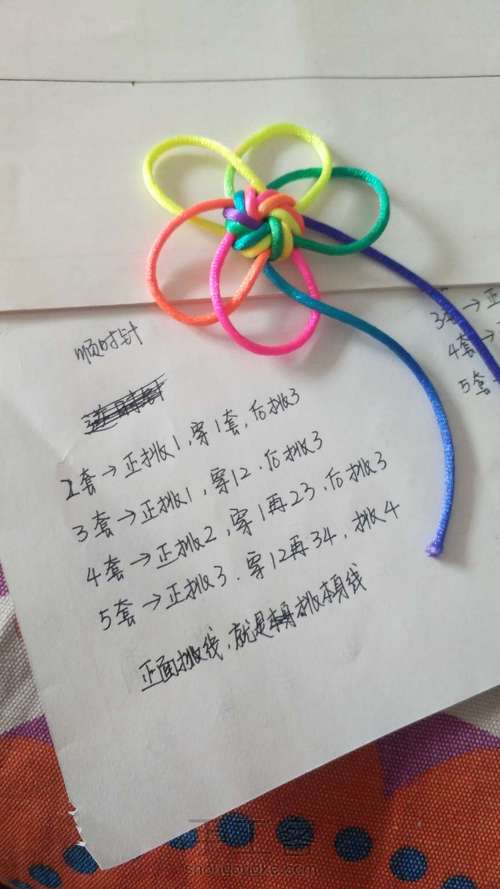 顺时针
2套→正挑1,穿1套,后挑3
3套→正挑1,穿12.后挑3
4套→正挑2,穿1再23.后挑3
5套→正挑3.穿12再34.挑4
正面挑线,就是挑本身线
3套→正
4套→
5套
shougongke.com